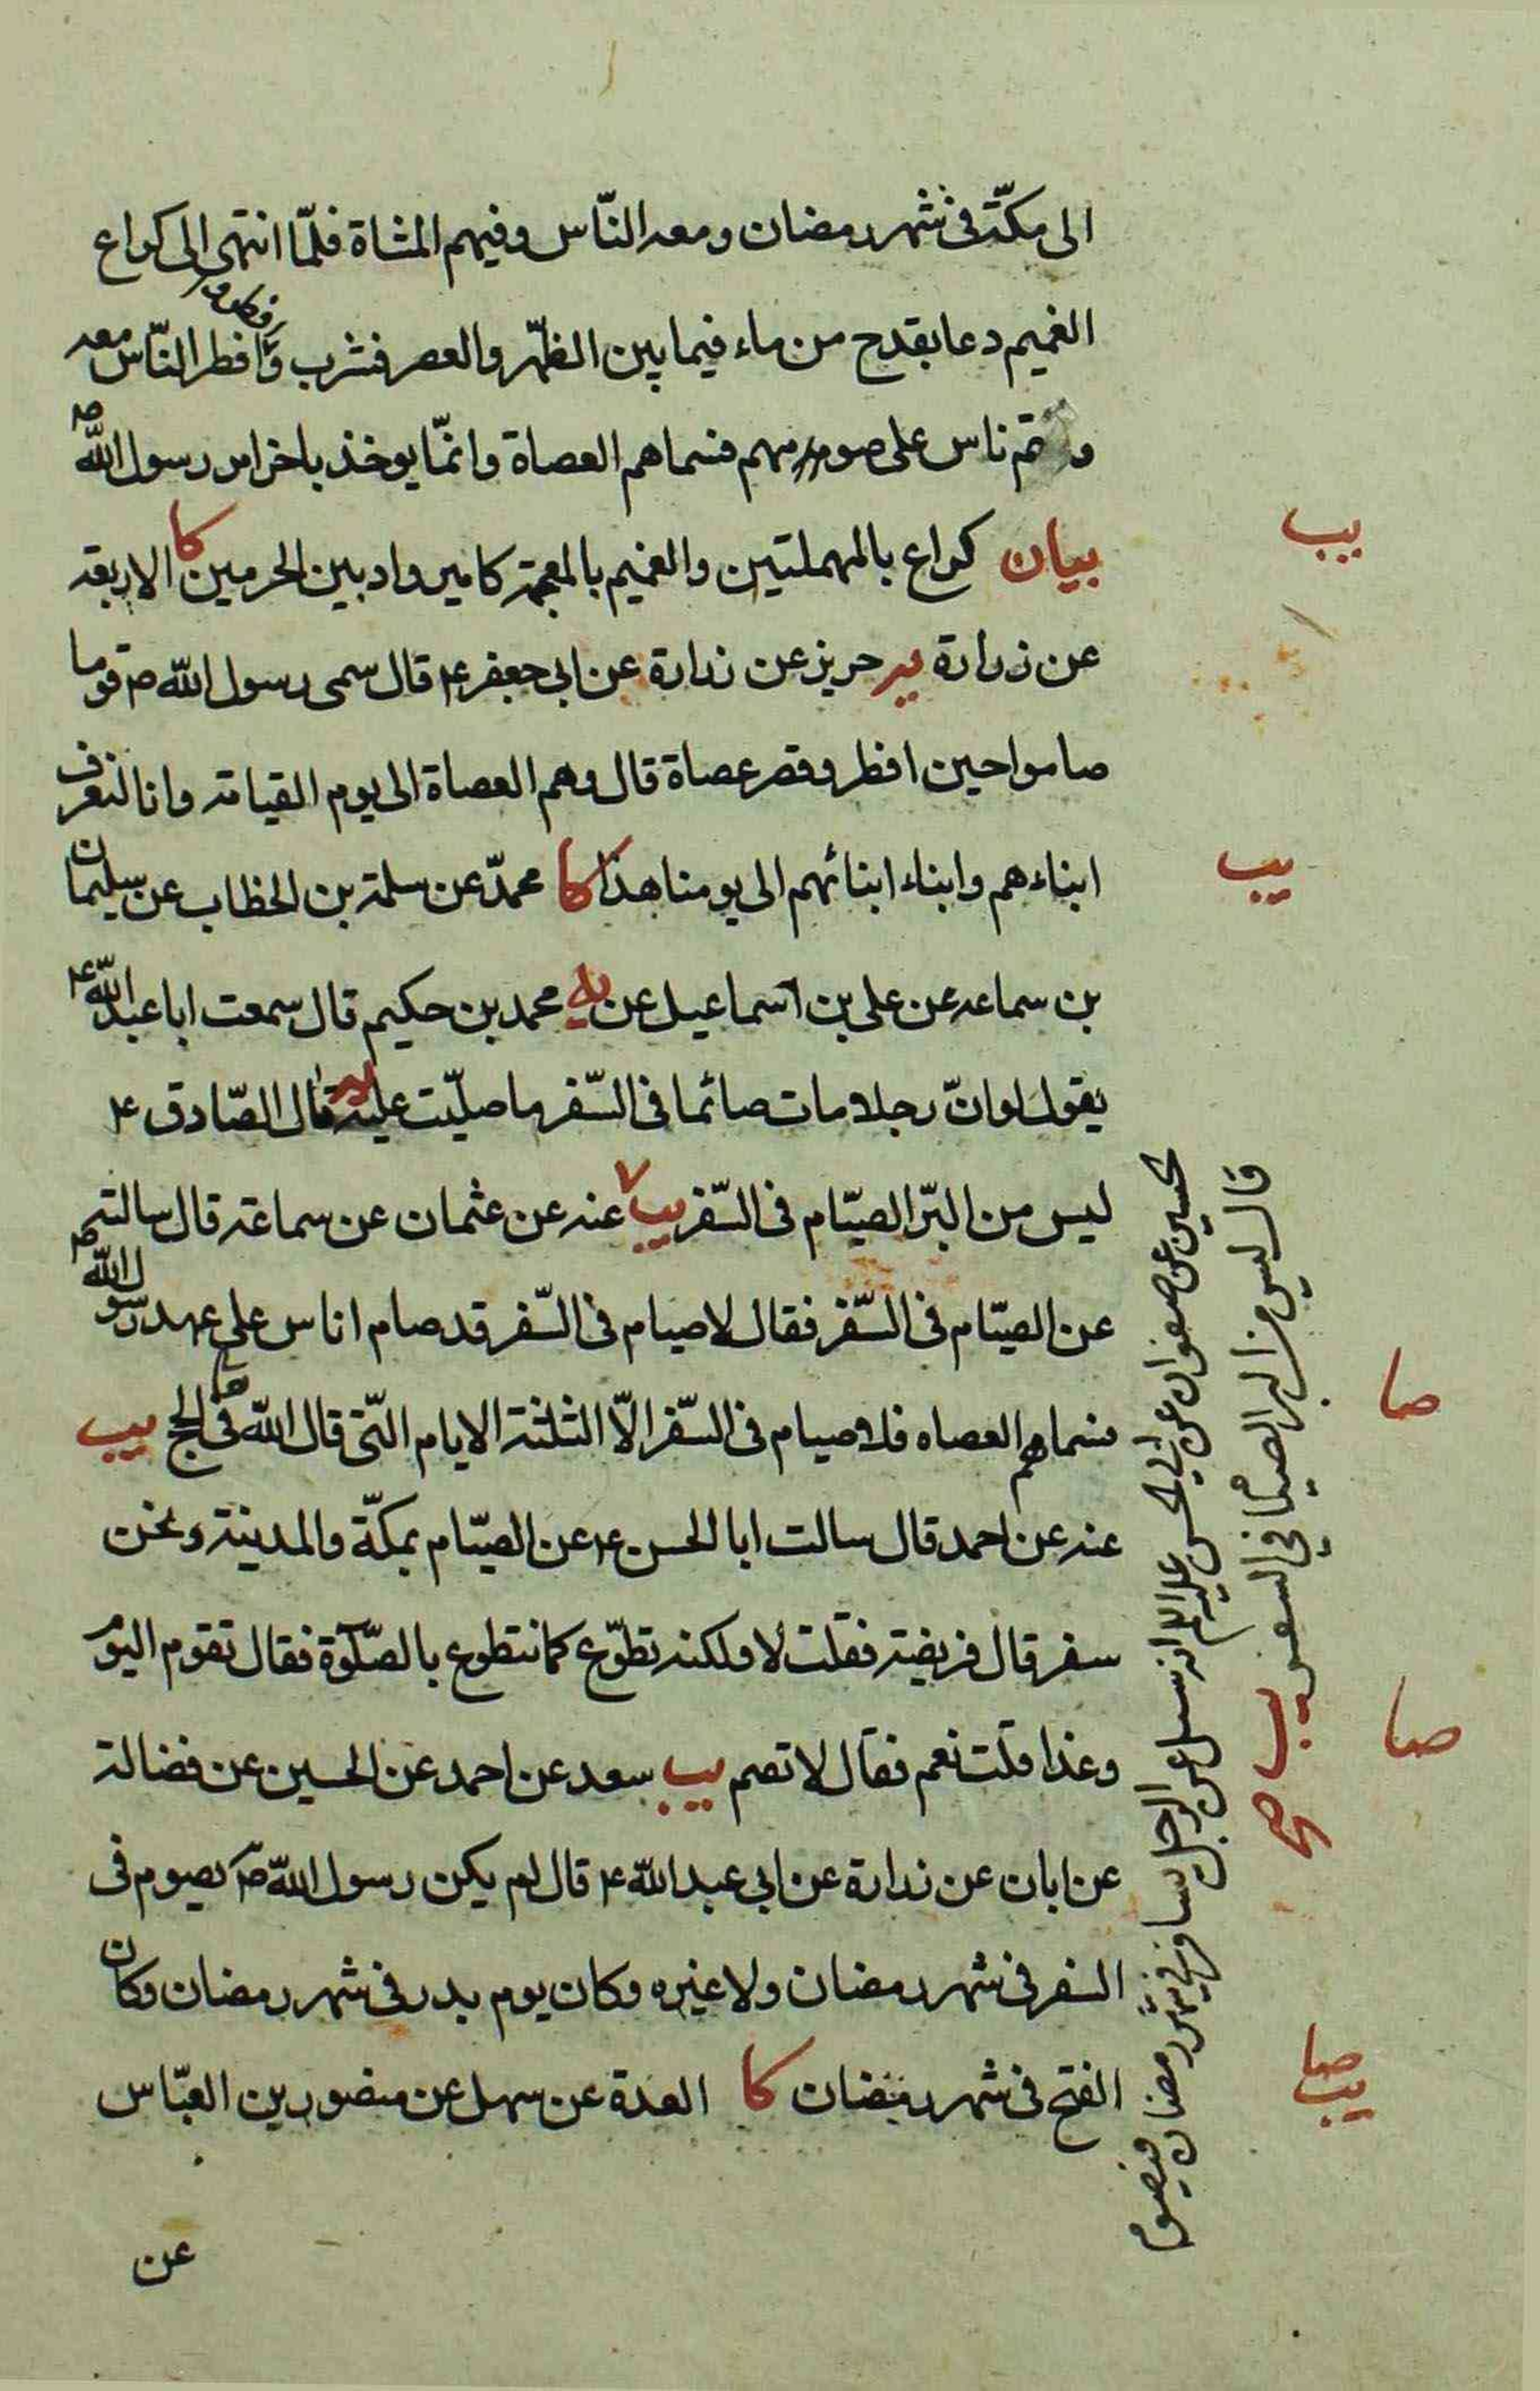 الى مكّة فى شهر رمضان ومعه النّاس وفيهم المشاة فلمّا انتهى الى كراع
الغميم دعا بقدح من ماء فيما بين الظّهر والعصر فشرب وافطر وافطر النّاس معه
وتم ناس على صومهم فسماهم العصاة وانمّا يوخذ باخر امر رسول الله ص
بيان كراع بالمهملتين والغميم بالمعجمة كامير واد بين الحرمين كا الاربعة
يب
عن زرارة يه حريز عن زرارة عن ابى جعفر ع قال سمى رسول الله ص قوما
صاموا حين افطر وقصر عصاة قال وهم العصاة الى يوم القيامة وانا لنعرف
ابناءهم وابناء ابنائهم الى يومنا هذا كا محمدّ عن سلمة بن الخطاب عن سليمان
يب
بن سماعه عن على بن اسماعيل عن يه محمد بن حكيم قال سمعت ابا عبد الله ع
يقول لو انّ رجلا مات صائما فى السّفر ما صلّيت عليه يه قال الصّادق ع
ليس من البرّ الصيّام فى السّفر يب عنه عن عثمان عن سماعة قال سالته
عن الصيّام فى السّفر فقال لا صيام فى السّفر قد صام اناس على عهد رسول الله ص
فسماهم العصاه فلا صيام فى السّفر الّا الثلثة الايام التّى قال الله تعا فى الحج يب
صا
عنه عن احمد قال سالت ابا الحسن ع عن الصيّام بمكّة والمدينة ونحن
سفر قال فريضة فقلت لا ولكنه تطوّع كما نتطوع بالصّلوة فقال تقوم اليوم
وغدا قلت نعم فقال لا تصم يب سعد عن احمد عن الحسين عن فضالة
صا
عن ابان عن زرارة عن ابى عبد الله ع قال لم يكن رسول الله ص يصوم فى
السفر فى شهر رمضان ولا غيره وكان يوم بدر فى شهر رمضان وكان
الفتح فى شهر رمضان كا العدة عن سهل عن منصور بن العبّاس
صا
يب
عن
الحسين عن صفوان عن ابي الحسن عليه السلام انه سئل عن الرجل يسافر في شهر رمضان فيصوم
قال ليس من البر الصيام في السفر يب صح